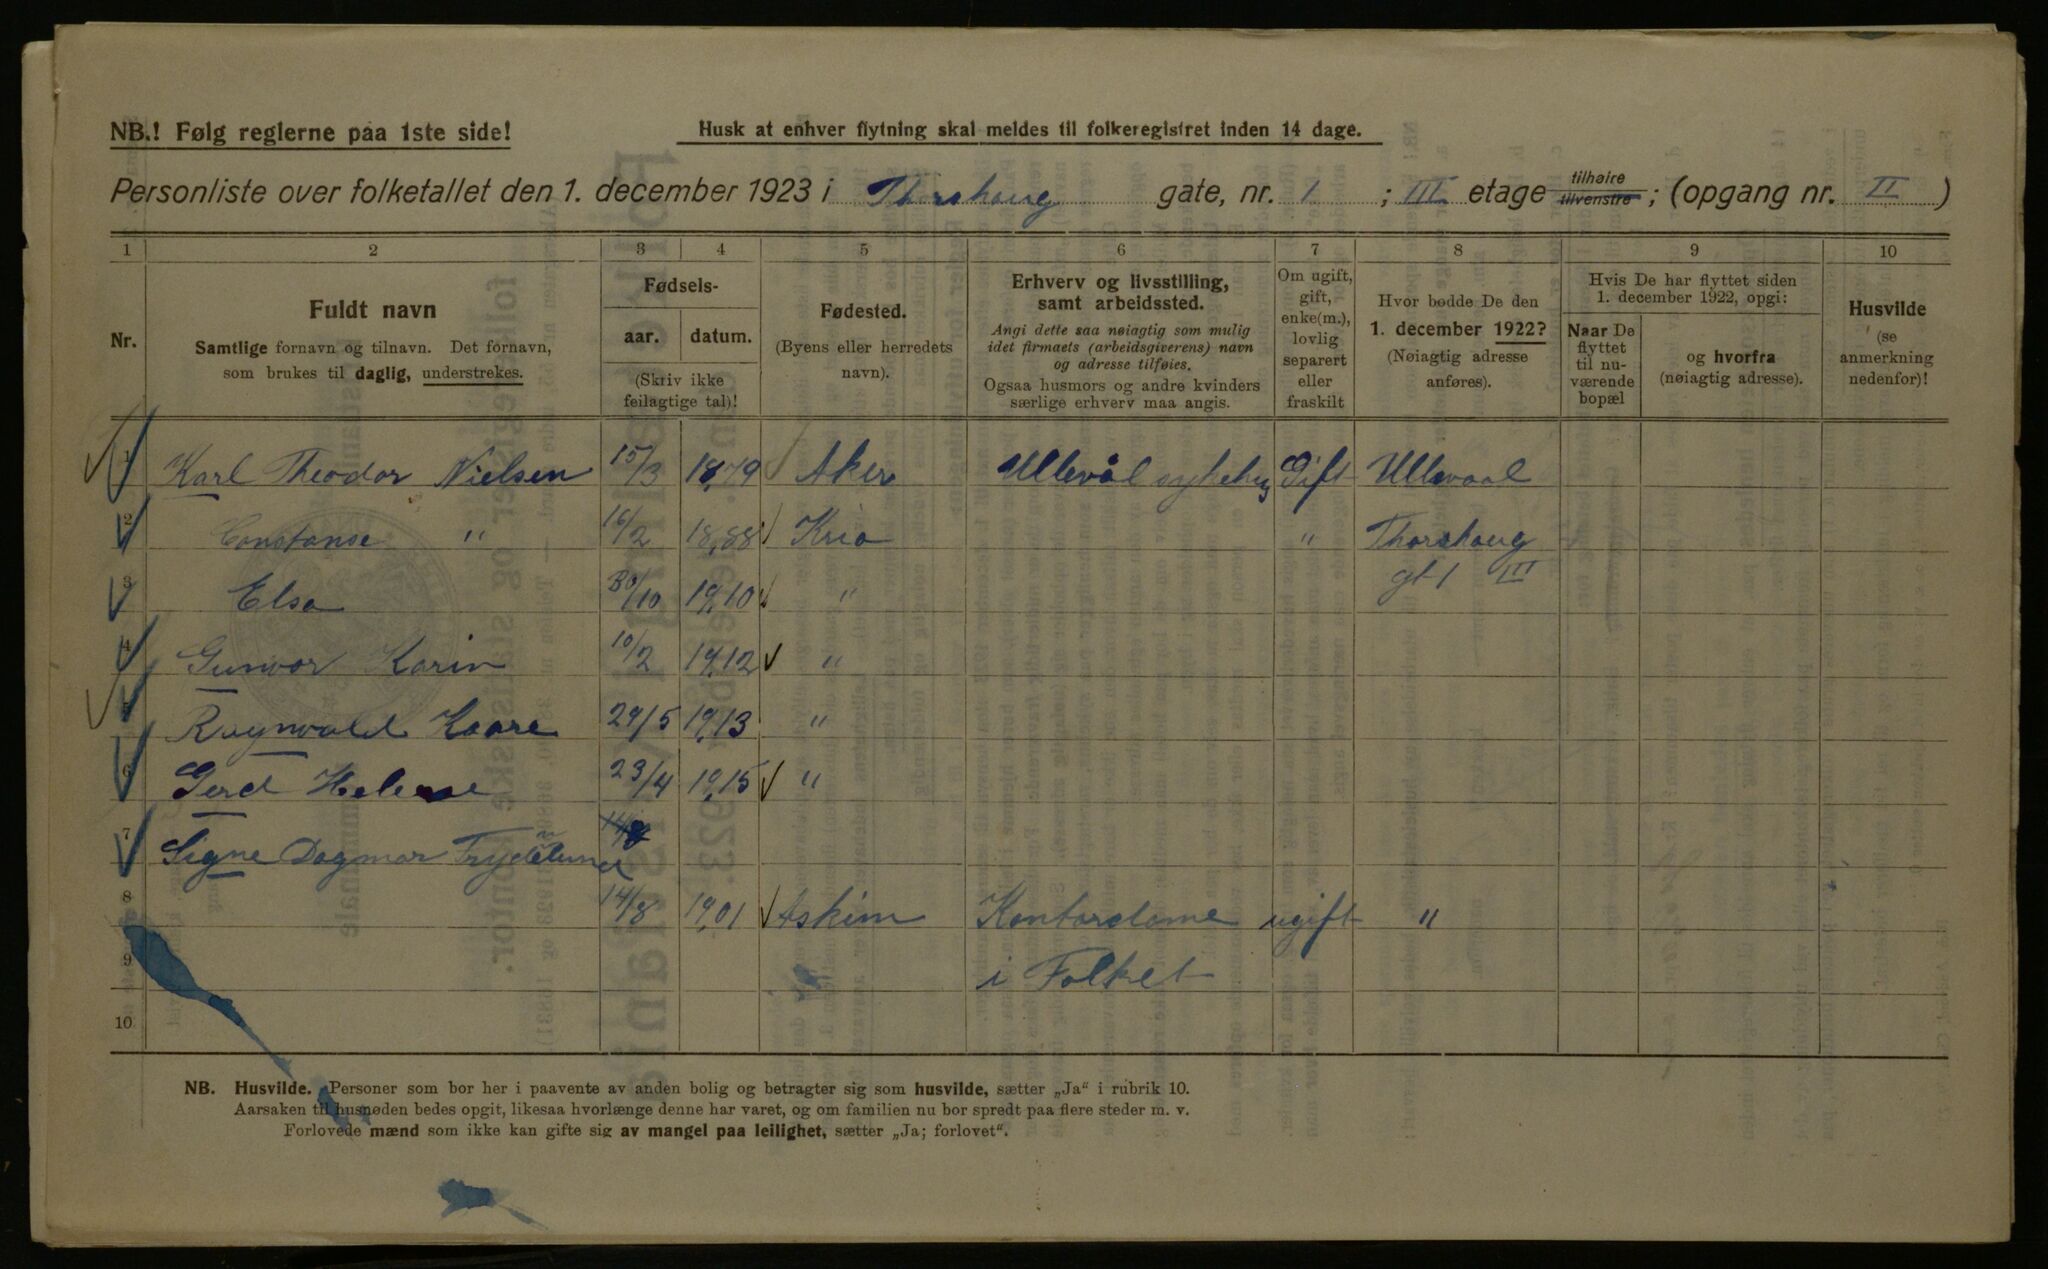 NB.! Følg reglerne paa 1ste side!
Husk at enhver flytning skal meldes til folkeregistret inden 14 dage.
Personliste over folketallet den 1. december 1923 i Thorshaug gate, nr. 1 ; III etage tilhøire tilvenstre ; (opgang nr. II )
1 2 3 4 5 6 7 8 9 10
Nr.
Fuldt navn
Samtlige fornavn og tilnavn. Det fornavn,
som brukes til daglig, understrekes.
Fødsels-
aar. datum.
(Skriv ikke
feilagtige tal)!
Fødested.
(Byens eller herredets
navn).
Erhverv og livsstilling,
samt arbeidssted.
Angi dette saa nøiagtig som mulig
idet firmaets (arbeidsgiverens) navn
og adresse tilføies.
Ogsaa husmors og andre kvinders
særlige erhverv maa angis.
Om ugift,
gift,
enke(m.),
lovlig
separert
eller
fraskilt
Hvor bodde De den
1. december 1922?
(Nøiagtig adresse
anføres).
Hvis De har flyttet siden
1. december 1922, opgi:
Naar De
flyttet
til nu-
værende
bopæl
og hvorfra
(nøiagtig adresse).
Husvilde
(se
anmerkning
nedenfor)!
1 Karl Theodor Nielsen 15/3 1879 Aker Ullevål sykehus Gift Ullevaal
2 Constanse " 16/2 18,88 Kria " Thorshaug
3 Elsa 30/10 19,10 " gt 1 III
4 Gunvor Karin 10/2 19,12 "
5 Ragnvald Kaare 29/5 19,13 "
6 Gerd Helene 23/4 19,15 "
7 Signe Dagmar Frydenlund 14/8
8 14/8 19,01 Askim Kontordame ugift "
9 i Folket
10
NB. Husvilde. Personer som bor her i paavente av anden bolig og betragter sig som husvilde, sætter „Ja“ i rubrik 10.
Aarsaken til husnøden bedes opgit, likesaa hvorlænge denne har varet, og om familien nu bor spredt paa flere steder m. v.
Forlovede mænd som ikke kan gifte sig av mangel paa leilighet, sætter „Ja; forlovet“.